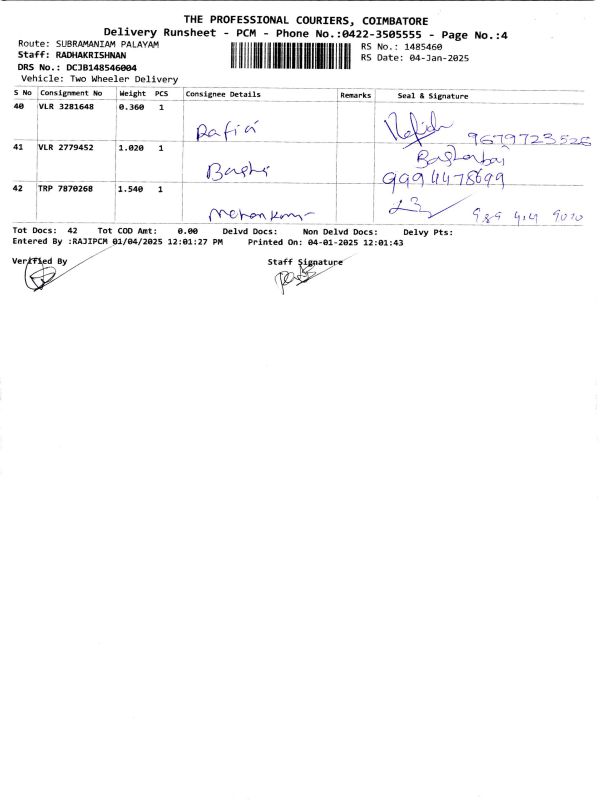 THE PROFESSIONAL COURIERS, COIMBATORE
Delivery Runsheet - PCM - Phone No.:0422-3505555 - Page No.:4
Route: SUBRAMANIAM PALAYAM RS No.: 1485460
Staff: RADHAKRISHNAN RS Date: 04-Jan-2025
DRS No.: DCJB148546004
Vehicle: Two Wheeler Delivery
S No Consignment No Weight PCS Consignee Details Remarks Seal & Signature
40 VLR 3281648 0.360 1
9679723526
41 VLR 2779452 1.020 1
9994478699
42 TRP 7870268 1.540 1
Tot Docs: 42 Tot COD Amt: 0.00 Delvd Docs: Non Delvd Docs: Delvy Pts:
Entered By :RAJIPCM 01/04/2025 12:01:27 PM Printed On: 04-01-2025 12:01:43
Verified By Staff Signature